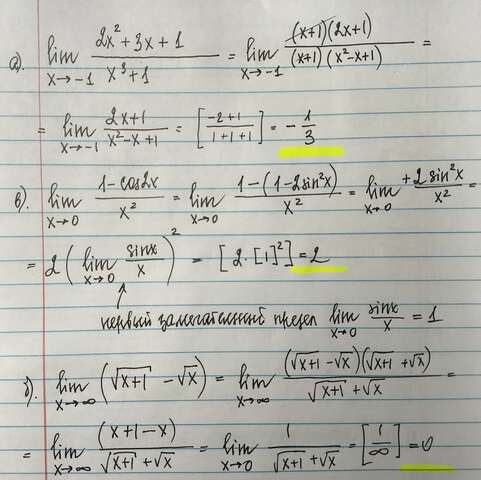 а). lim x→-1 (2x² + 3x + 1)/(x³ + 1) = lim x→-1 ((x+1)(2x+1))/((x+1)(x²-x+1)) =
= lim x→-1 (2x+1)/(x²-x+1) = [(-2+1)/(1+1+1)] = -1/3
в). lim x→0 (1-cos2x)/x² = lim x→0 (1-(1-2sin²x))/x² = lim x→0 (+2sin²x)/x² =
= 2(lim x→0 sinx/x)² = [2·[1]²] = 2
первый замечательный предел lim x→0 sinx/x = 1
б). lim x→∞ (√(x+1) - √x) = lim x→∞ ((√(x+1) - √x)(√(x+1) + √x))/(√(x+1) + √x) =
= lim x→∞ (x+1-x)/(√(x+1) + √x) = lim x→0 1/(√(x+1) + √x) = [1/∞] = 0